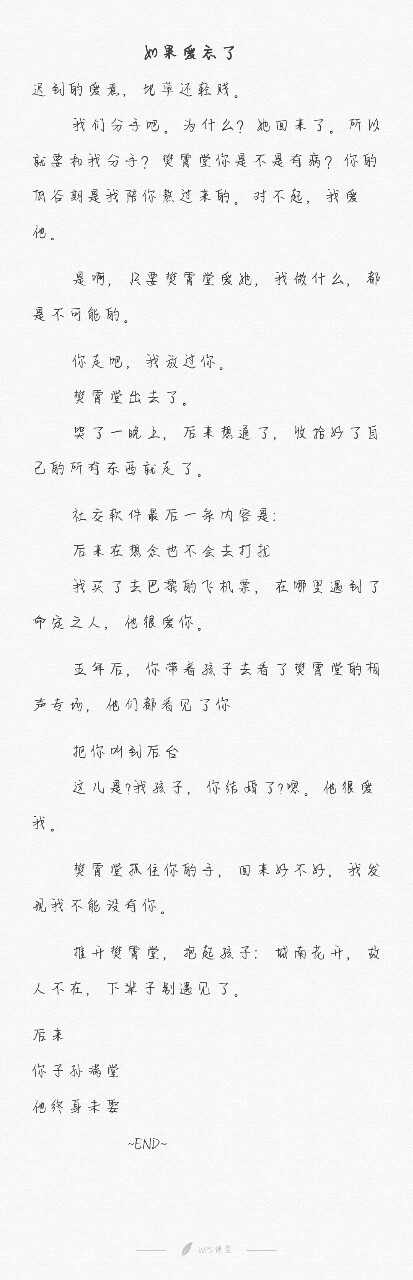 如果爱忘了
迟到的爱意，比草还轻贱。
我们分手吧。为什么？她回来了。所以
就要和我分手？樊霄堂你是不是有病？你的
低谷期是我陪你熬过来的。对不起，我爱
他。
是啊，只要樊霄堂爱她，我做什么，都
是不可能的。
你走吧，我放过你。
樊霄堂出去了。
哭了一晚上，后来想通了，收拾好了自
己的所有东西就走了。
社交软件最后一条内容是：
后来在想念也不会去打扰
我买了去巴黎的飞机票，在哪里遇到了
命定之人，他很爱你。
五年后，你带着孩子去看了樊霄堂的相
声专场，他们都看见了你
把你叫到后台
这儿是?我孩子，你结婚了?嗯。他很爱
我。
樊霄堂抓住你的手，回来好不好，我发
现我不能没有你。
推开樊霄堂，抱起孩子：城南花开，故
人不在，下辈子别遇见了。
后来
你子孙满堂
他终身未娶
~END~
WPS便签